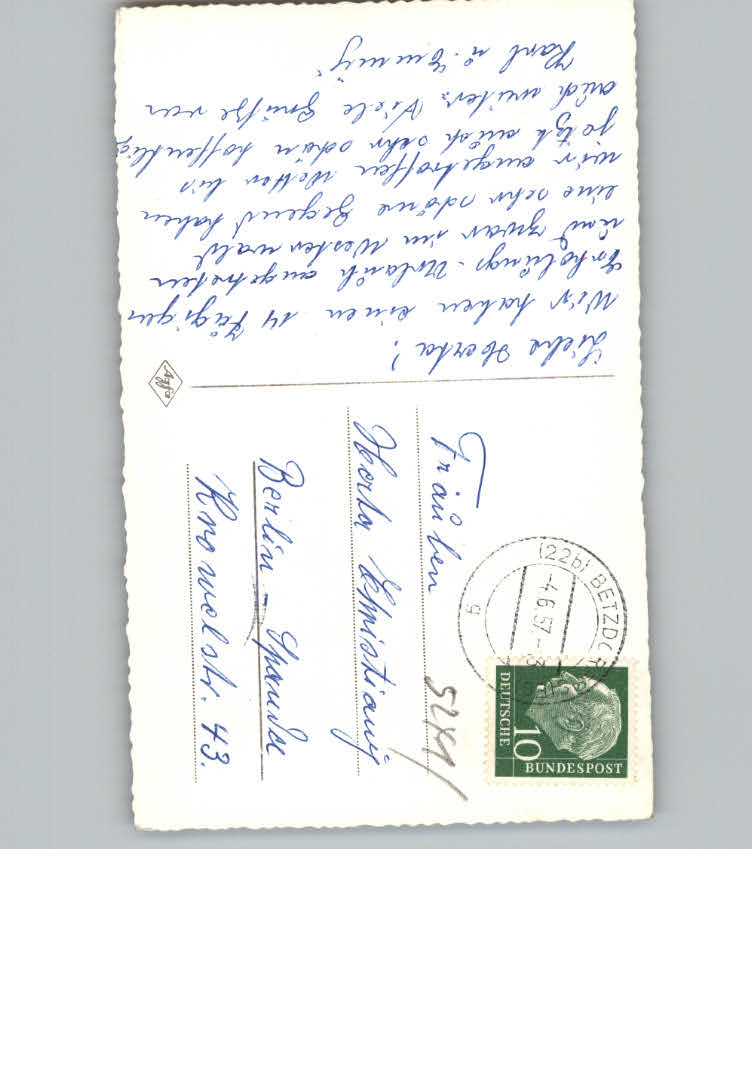 Liebe Herta!
Wir haben einen 14 tägigen
Erholungs-Urlaub angetreten
und zwar im Westerwald
eine sehr schöne Gegend haben
wir angetroffen Wetter bis
jetzt auch sehr schön hoffentlich
auch weiter. Viele Grüße von
Karl u. Emmy
Agfa
Fräulein
Herta
Berlin - Spandau
43.
5241
(22b) BETZDORF
-4.6.57.-3
b
DEUTSCHE
10
BUNDESPOST